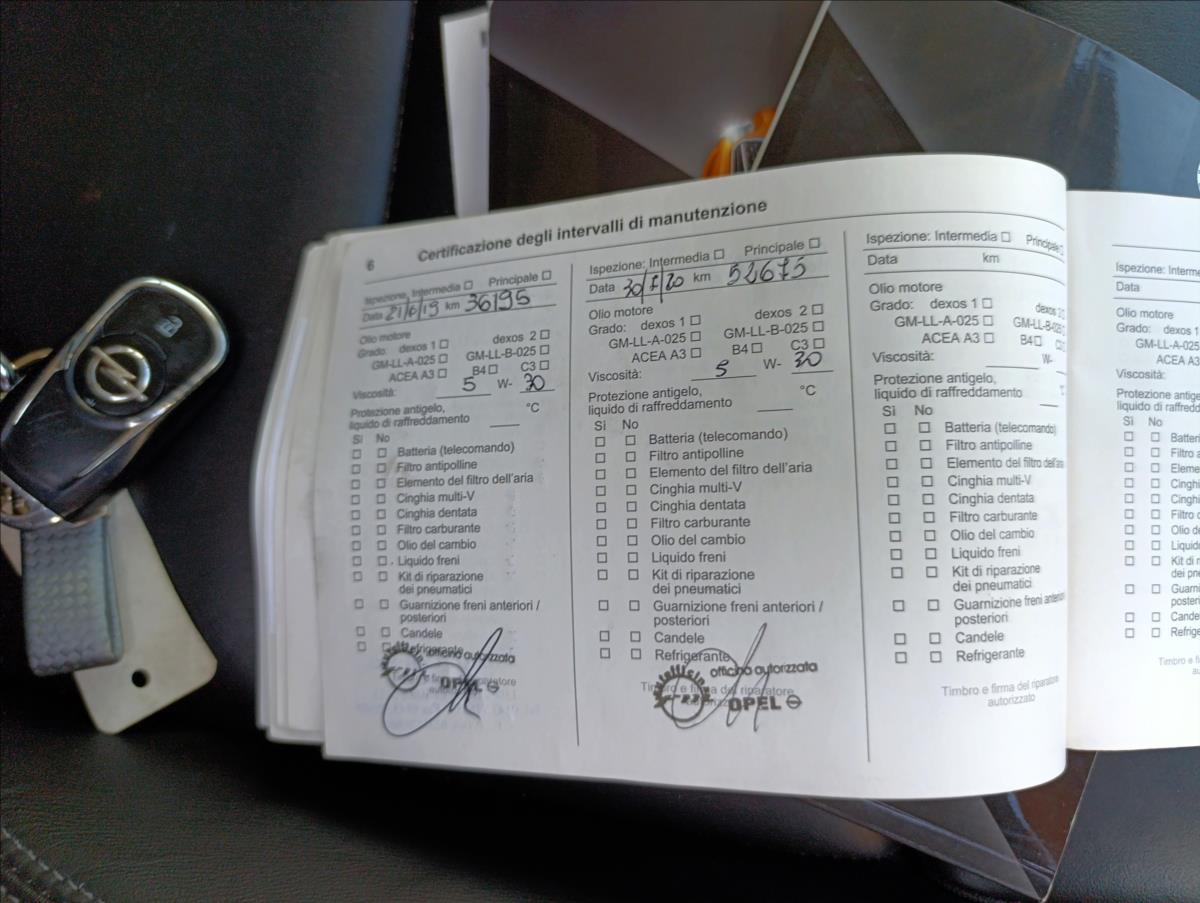 6 Certificazione degli intervalli di manutenzione
Ispezione, Intermedia ☐ Principale ☐
Data 21/6/19 km 36195
Olio motore
Grado: dexos 1 ☐ dexos 2 ☐
GM-LL-A-025 ☐ GM-LL-B-025 ☐
ACEA A3 ☐ B4 ☐ C3 ☐
Viscosità: 5 W- 30
Protezione antigelo,
liquido di raffreddamento °C
Sì No
☐ ☐ Batteria (telecomando)
☐ ☐ Filtro antipolline
☐ ☐ Elemento del filtro dell'aria
☐ ☐ Cinghia multi-V
☐ ☐ Cinghia dentata
☐ ☐ Filtro carburante
☐ ☐ Olio del cambio
☐ ☐ Liquido freni
☐ ☐ Kit di riparazione
dei pneumatici
☐ ☐ Guarnizione freni anteriori /
posteriori
☐ ☐ Candele
☐ ☐ Refrigerante
officina autorizzata
OPEL
Ispezione: Intermedia ☐ Principale ☐
Data 30/7/20 km 52675
Olio motore
Grado: dexos 1 ☐ dexos 2 ☐
GM-LL-A-025 ☐ GM-LL-B-025 ☐
ACEA A3 ☐ B4 ☐ C3 ☐
Viscosità: 5 W- 30
Protezione antigelo,
liquido di raffreddamento °C
Sì No
☐ ☐ Batteria (telecomando)
☐ ☐ Filtro antipolline
☐ ☐ Elemento del filtro dell'aria
☐ ☐ Cinghia multi-V
☐ ☐ Cinghia dentata
☐ ☐ Filtro carburante
☐ ☐ Olio del cambio
☐ ☐ Liquido freni
☐ ☐ Kit di riparazione
dei pneumatici
☐ ☐ Guarnizione freni anteriori /
posteriori
☐ ☐ Candele
☐ ☐ Refrigerante
officina autorizzata
Timbro e firma del riparatore
OPEL
Ispezione: Intermedia ☐ Principale ☐
Data km
Olio motore
Grado: dexos 1 ☐ dexos 2
GM-LL-A-025 ☐ GM-LL-B-025
ACEA A3 ☐ B4 ☐
Viscosità: W-
Protezione antigelo,
liquido di raffreddamento
Sì No
☐ ☐ Batteria (telecomando)
☐ ☐ Filtro antipolline
☐ ☐ Elemento del filtro dell'aria
☐ ☐ Cinghia multi-V
☐ ☐ Cinghia dentata
☐ ☐ Filtro carburante
☐ ☐ Olio del cambio
☐ ☐ Liquido freni
☐ ☐ Kit di riparazione
dei pneumatici
☐ ☐ Guarnizione freni anteriori
posteriori
☐ ☐ Candele
☐ ☐ Refrigerante
Timbro e firma del riparatore
autorizzato
Ispezione:
Data
Olio motore
Grado: dexos 1
GM-LL-A-025
ACEA A3
Viscosità:
Sì No
Timbro e